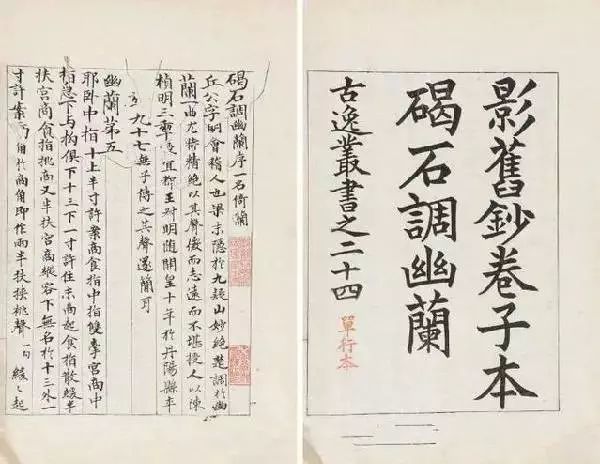 影舊鈔卷子本
碣石調幽蘭
古逸叢書之二十四
單行本
碣石調幽蘭序一名倚蘭
丘公字明會稽人也梁末隱於九疑山妙絕楚調於幽
蘭一曲尤特精絕以其聲微而志遠而不堪授人以陳
禎明三年授宜都王叔明隨開皇十年於丹陽縣卒
九十七無子傳之其聲遂簡耳
幽蘭第五
耶臥中指十上半寸許案商食指中指雙牽宮商中
指急下与拘俱下十三下一寸許住末商起食指散緩半
扶宮商食指挑商又半扶宮商縱容下無名於十三外一
寸許案商角於商角即作兩半扶挾挑聲 句 緩〻起